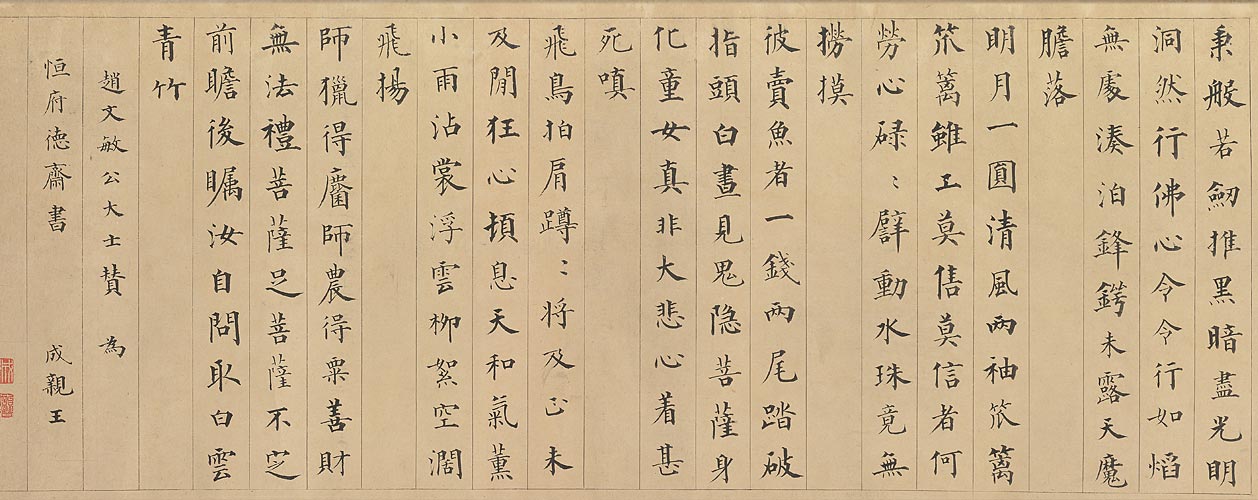 秉般若劒推黑暗盡光明
洞然行佛心令令行如焰
無處湊泊鋒鍔未露天魔
膽落
明月一圓清風兩袖笊籬
笊籬雖工莫售莫信者何
勞心碌〻擘動水珠竟無
撈摸
彼賣魚者一錢兩尾踏破
指頭白晝見鬼隐菩薩身
化童女真非大悲心着甚
死嗔
飛鳥拍肩蹲〻将及正未
及閒狂心頓息天和氣薰
小雨沾裳浮雲柳絮空濶
飛揚
師獵得麕師農得粟善財
無法禮菩薩足菩薩不㝎
前瞻後瞩汝自問取白雲
青竹
趙文敏公大士賛 為
恒府德齋書 成親王